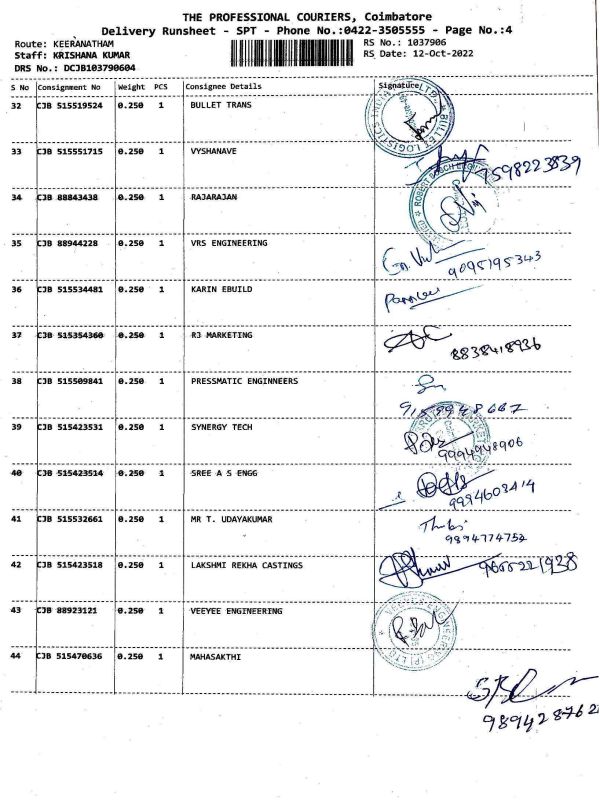 THE PROFESSIONAL COURIERS, Coimbatore
Delivery Runsheet - SPT - Phone No.:0422-3505555 - Page No.:4
Route: KEERANATHAM RS No.: 1037906
Staff: KRISHANA KUMAR RS Date: 12-Oct-2022
DRS No.: DCJB103790604
S No Consignment No Weight PCS Consignee Details Signature
32 CJB 515519524 0.250 1 BULLET TRANS
33 CJB 515551715 0.250 1 VYSHANAVE
7598223839
34 CJB 88843438 0.250 1 RAJARAJAN
35 CJB 88944228 0.250 1 VRS ENGINEERING
9095195343
36 CJB 515534481 0.250 1 KARIN EBUILD
37 CJB 515354360 0.250 1 RJ MARKETING
8838418936
38 CJB 515509841 0.250 1 PRESSMATIC ENGINNEERS
39 CJB 515423531 0.250 1 SYNERGY TECH
9994948906
40 CJB 515423514 0.250 1 SREE A S ENGG
9994603414
41 CJB 515532661 0.250 1 MR T. UDAYAKUMAR
9894774752
42 CJB 515423518 0.250 1 LAKSHMI REKHA CASTINGS
43 CJB 88923121 0.250 1 VEEYEE ENGINEERING
44 CJB 515470636 0.250 1 MAHASAKTHI
989428762